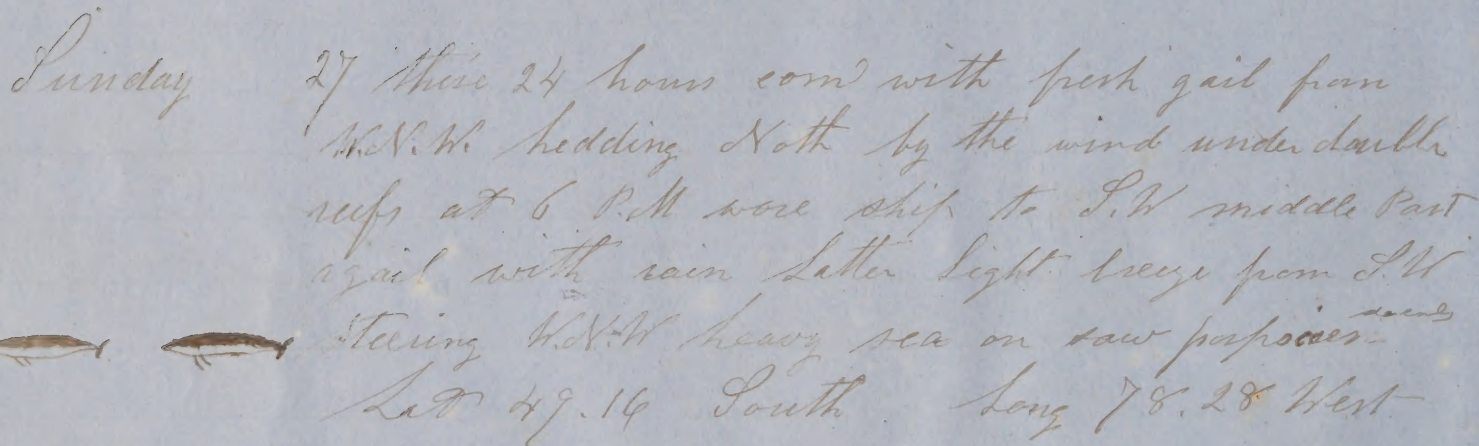 Sunday 27 these 24 hours com with fresh gail from
W.N.W. hedding Noth by the wind under double
reefs at 6 P.M wore ship to S.W middle Part
a gail with rain Latter light breeze from S.W
Steering W.N.W heavy sea on saw porpoises
Lat 49.16 South Long 78.28 West